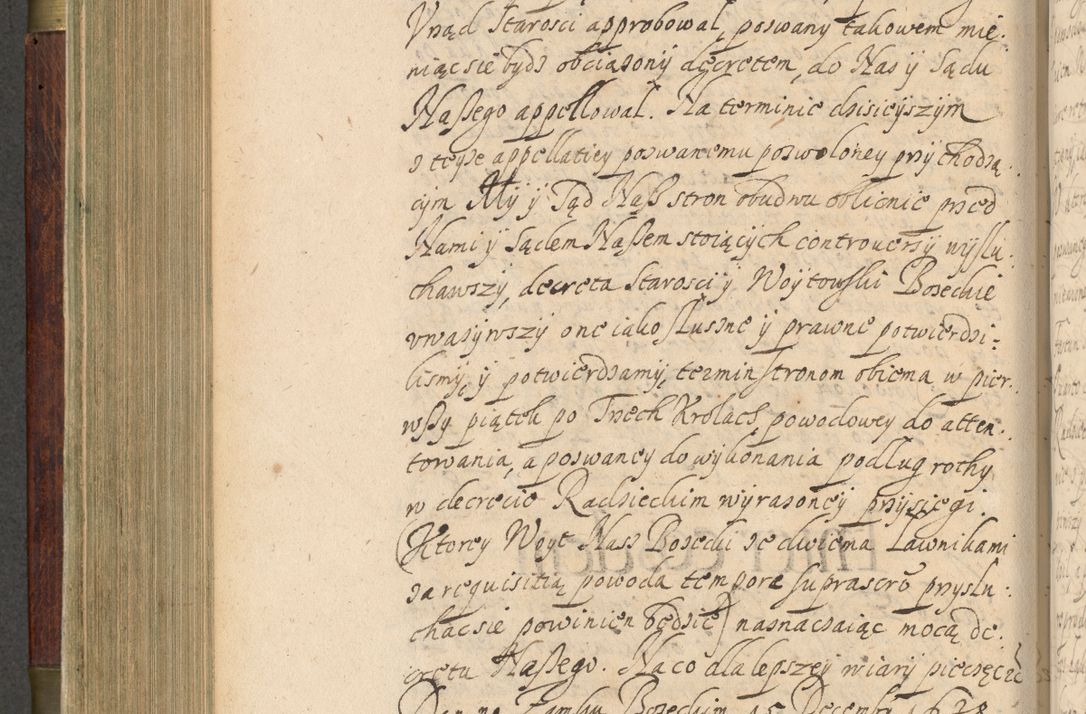 Vrząd Starosci approbował, pozwany takowem mie-
niącsie bydz obciązony decretem, do Nas y Sądu
Naszego appellował. Na terminie dzisieyszym
z teyże appellatiey pozwanemu pozwoloney przychodzą-
cym My y Sąd Nasz stron obudwu oblicznie przed
Nami y Sądem Naszem stoiących controuersÿ wysłu-
chawszy, decreta Starosci y Woytowski Bozeckie
vwazywszy one iako słuszne y prawne potwierdzi-
lismy, y potwierdzamy, termin stronom obiema w pier-
wszy piątek po Trzech Krolach, powodowey do atten-
towania, a pozwaney do wykonania podług rothy
w decrecie Radzieckim wyrazoney przysięgi.
(Ktorey Woyt Nasz Bozecki ze dwiema Ławnikami
za requisitią powoda tempore suprascrõ przysłu-
chac sie powinien będzie) naznaczaiąc mocą de-
cretu Naszego. Na co dla lepszey wiary pieczęc
Dan na Zamku Bozeckim 15 Decembr 1628